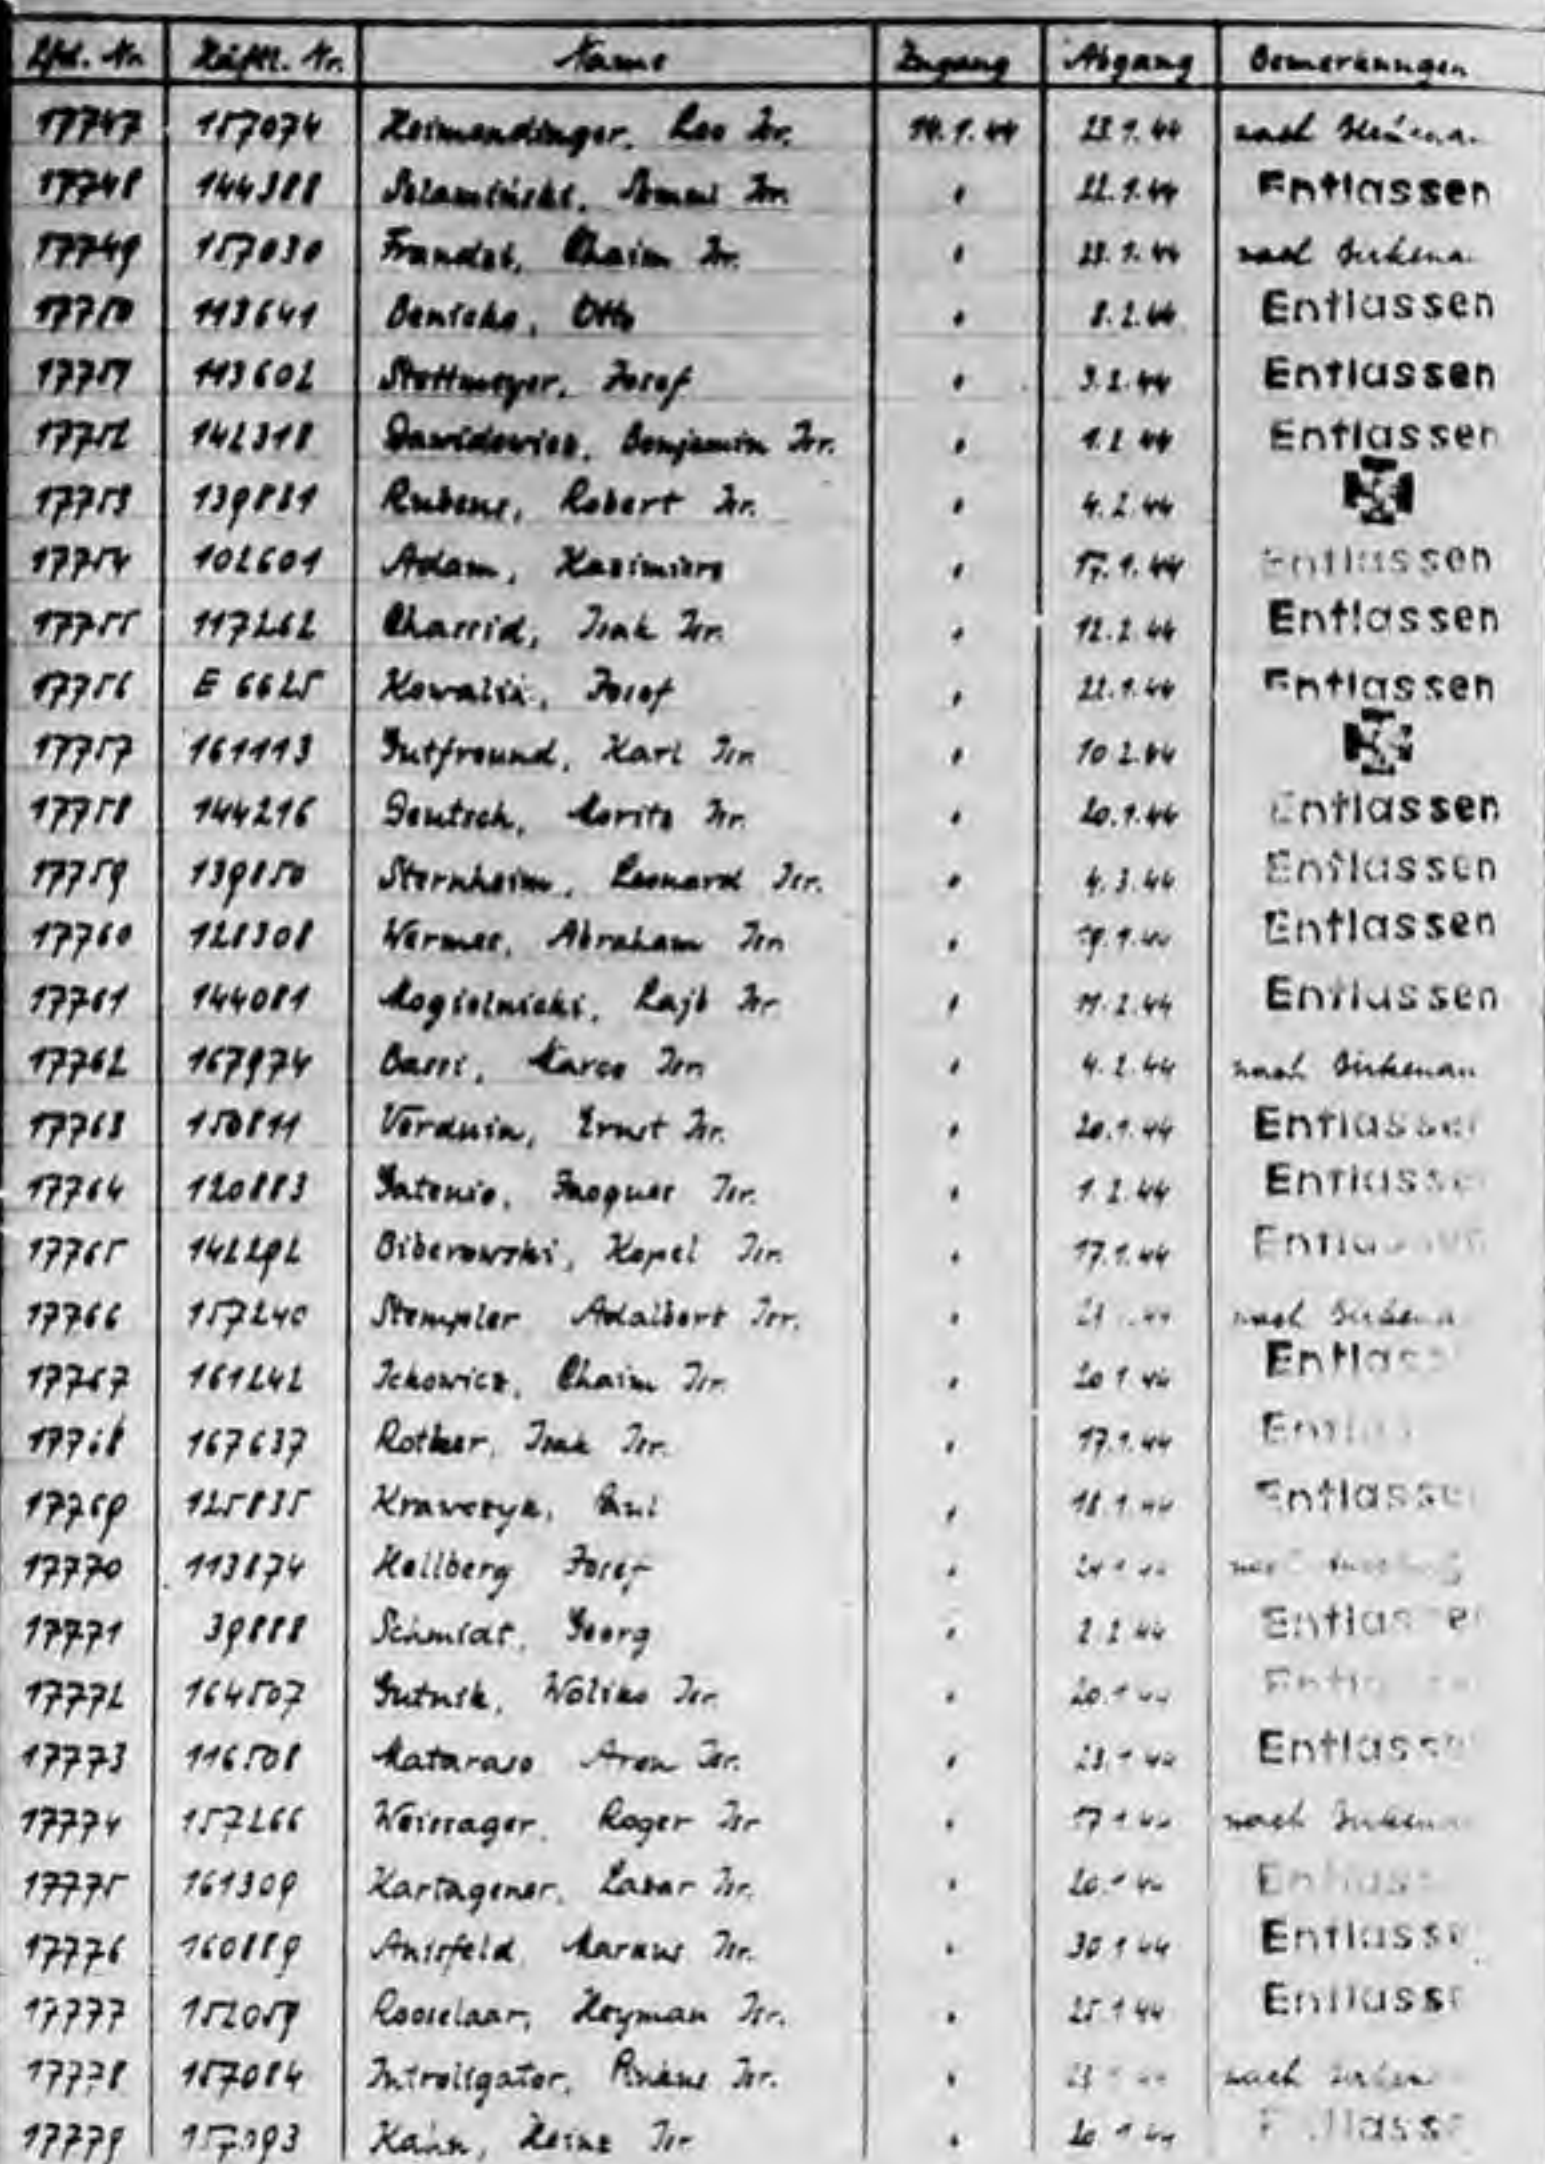 Lfd. Nr. Häftl. Nr. Name Zugang Abgang Bemerkungen
17747 157074 Heimendinger, Leo Isr. 14.1.44 23.1.44 nach
17748 144388 Isr. " 22.1.44 Entlassen
17749 157030 Chaim Isr. " 23.1.44 nach Birkenau
17750 113641 Benicke, Otto " 8.2.44 Entlassen
17751 113602 Stottmeyer, Josef " 3.2.44 Entlassen
17752 142318 Dawidowicz, Benjamin Isr. " 1.2.44 Entlassen
17753 139831 Rubens, Robert Isr. " 4.2.44
17754 102601 Adam, Kazimierz " 17.1.44 Entlassen
17755 117262 Charrid, Isak Isr. " 12.2.44 Entlassen
17756 E 6625 Josef " 22.1.44 Entlassen
17757 161113 Gutfreund, Karl Isr. " 10.2.44
17758 144216 Deutsch, Moritz Isr. " 20.1.44 Entlassen
17759 139850 Sternheim, Leonard Isr. " 4.3.44 Entlassen
17760 128308 Wermes, Abraham Isr. " 19.1.44 Entlassen
17761 144081 Mogielnicki, Lajb Isr. " 11.2.44 Entlassen
17762 167974 Marco Isr. " 4.2.44 nach Birkenau
17763 150811 Verduin, Ernst Isr. " 20.1.44 Entlassen
17764 120883 Gatenio, Jaques Isr. " 1.2.44 Entlassen
17765 142292 Biberowski, Kopel Isr. " 17.1.44 Entlassen
17766 157240 Stempler Adalbert Isr. " nach Birkenau
17767 161242 Ickowicz, Chaim Isr. " 20.1.44 Entlass
17768 167637 Isak Isr. " 17.1.44 Entlas
17769 125835 Krawczyk, " 18.1.44 Entlassen
17770 113874 Hellberg Josef "
17771 39888 Schmidt, Georg " 2.2.44 Entlassen
17772 164507 Gutnik, Isr. " 20.1.44
17773 116508 Mataraso Aron Isr. " 23.1.44 Entlassen
17774 157266 Weissager, Roger Isr. " 17.1.44 nach Birkenau
17775 161309 Kartagener, Lazar Isr. " 20.1.44 Entlass
17776 160889 Anisfeld, Markus Isr. " 30.1.44 Entlasse
17777 152059 Rooselaar, Heyman Isr. " 25.1.44 Entlasse
17778 157084 Introligator, Pinkus Isr. " nach Birkenau
17779 157093 Kahn, Heinz Isr. " 20.1.44